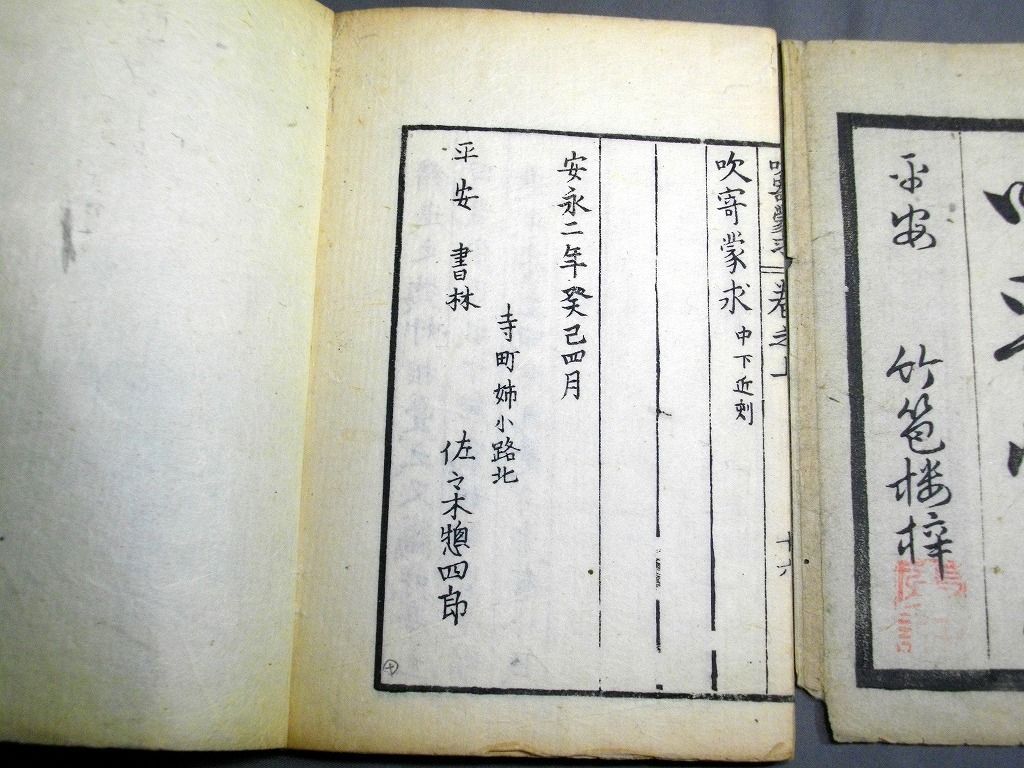 平安
竹苞楼梓
吹寄蒙求巻之上
十六
吹寄蒙求 中下近刻
安永二年癸巳四月
寺町姉小路北
平安 書林 佐々木惣四郎
十